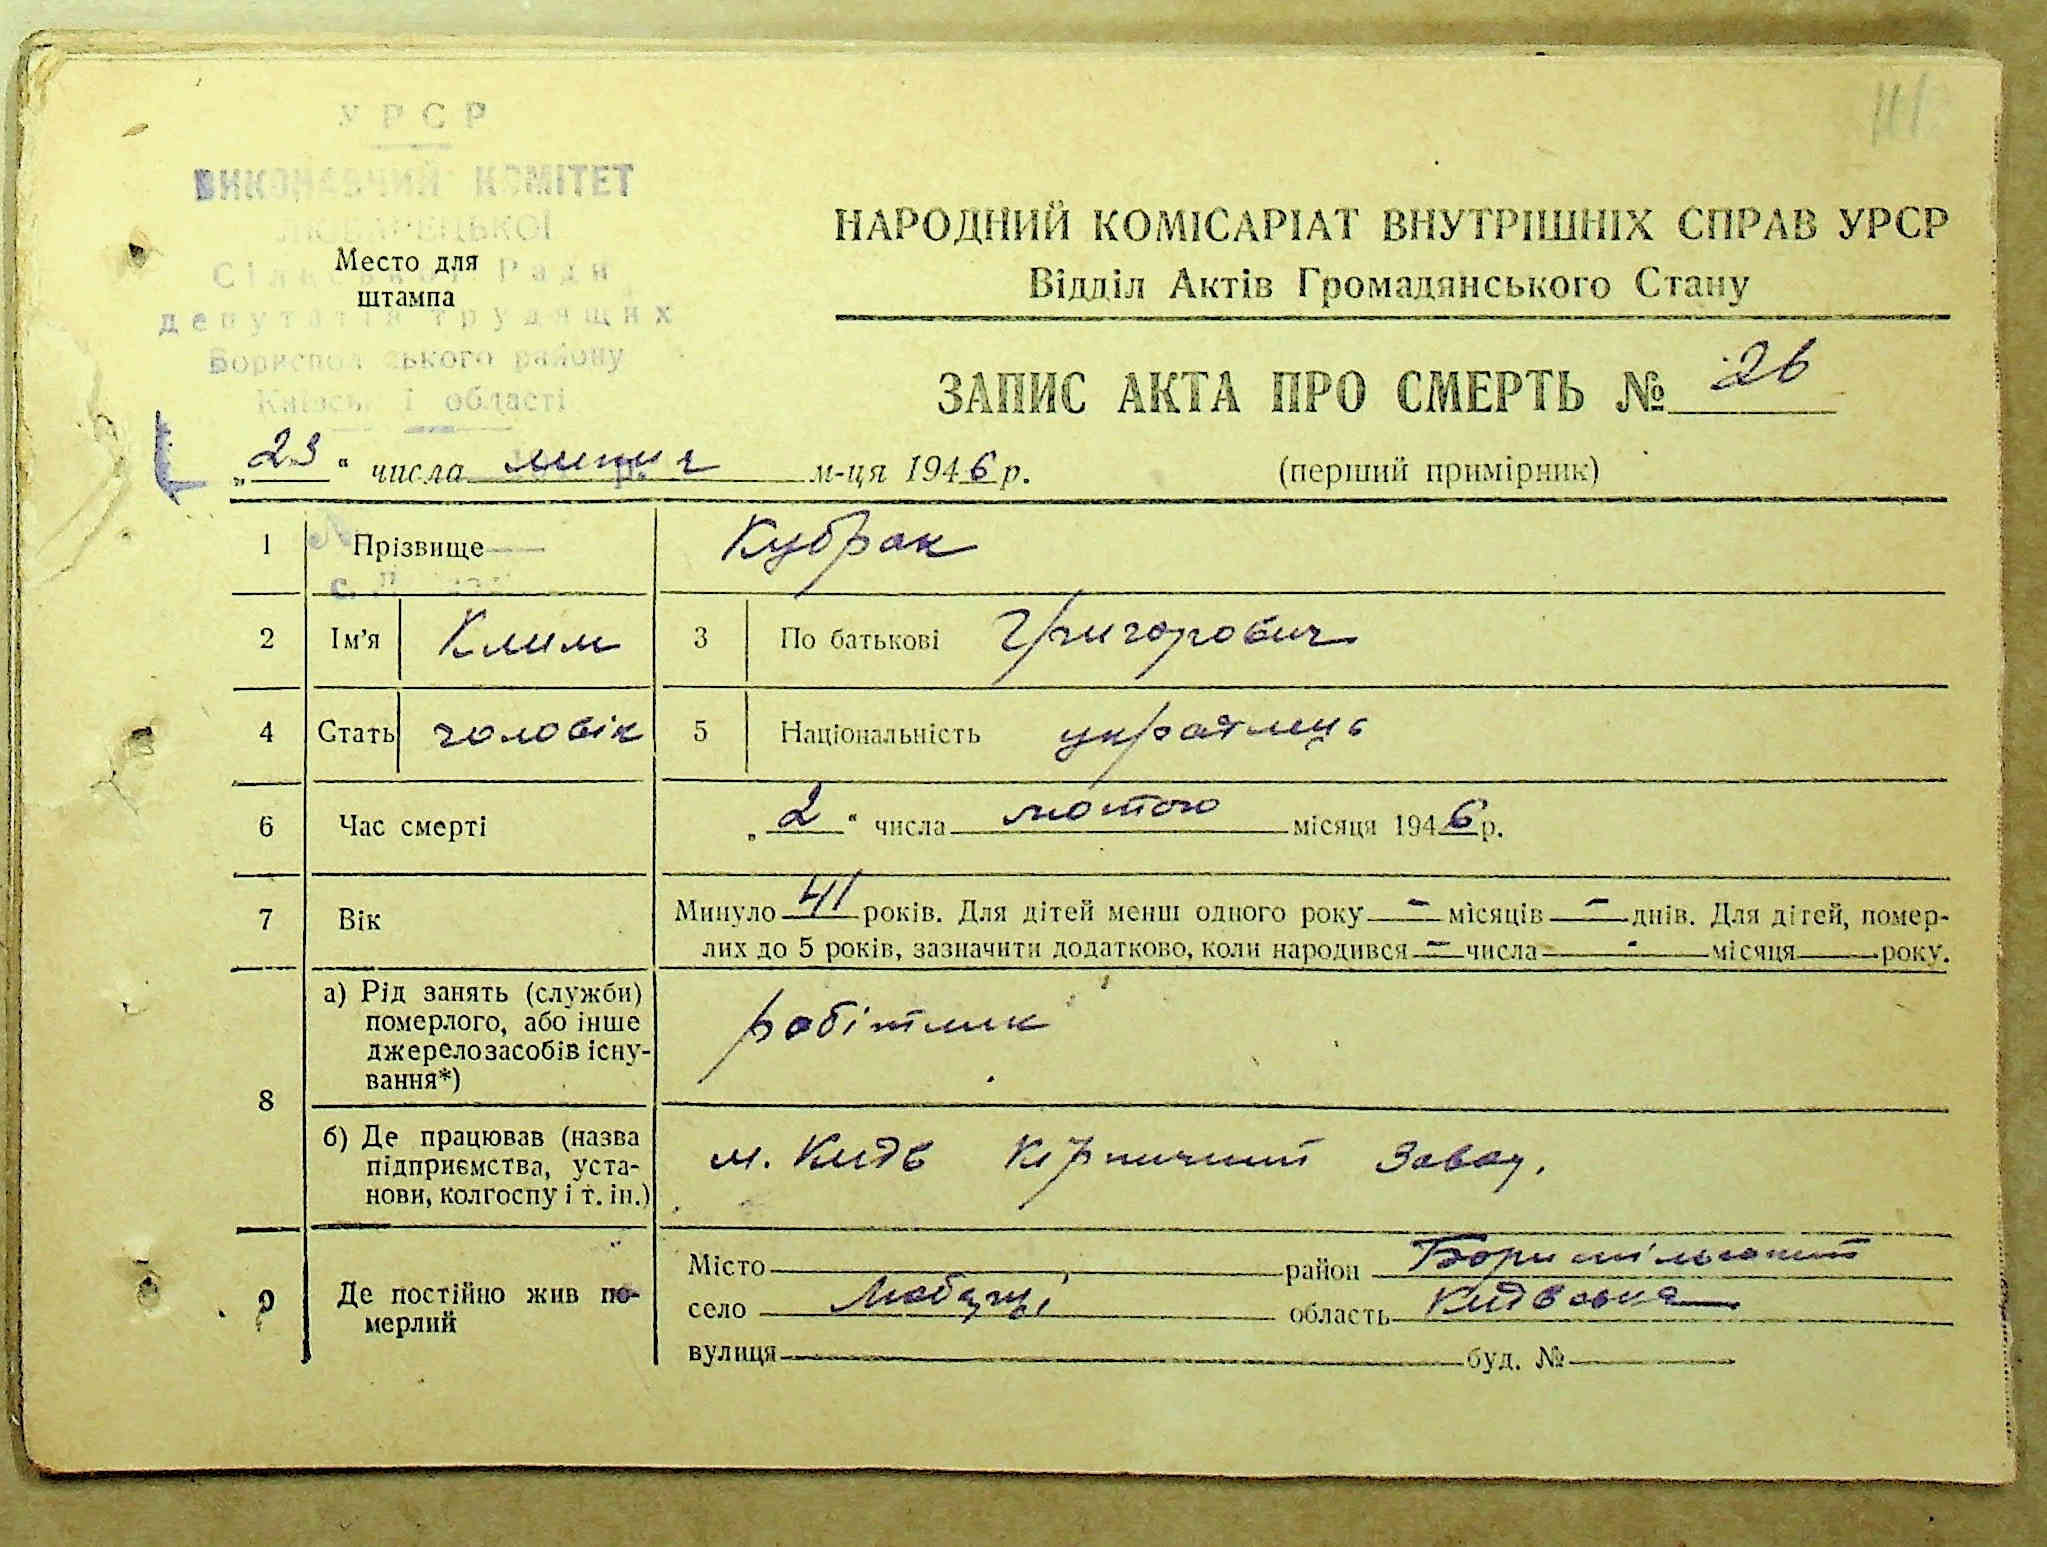 УРСР
ВИКОНАВЧИЙ КОМІТЕТ
ЛЮБАРЕЦЬКОЇ
Сільської Ради
депутатів трудящих
Бориспольського району
Київської області
Место для
штампа
НАРОДНИЙ КОМІСАРІАТ ВНУТРІШНІХ СПРАВ УРСР
Відділ Актів Громадянського Стану
ЗАПИС АКТА ПРО СМЕРТЬ № 26
„23“ числа липня м-ця 1946 р. (перший примірник)
1 Прізвище Кубрак
2 Ім'я Клим 3 По батькові Григорович
4 Стать чоловік 5 Національність українець
6 Час смерті „2“ числа лютого місяця 1946 р.
7 Вік Минуло 41 років. Для дітей менш одного року — місяців — днів. Для дітей, помер-
лих до 5 років, зазначити додатково, коли народився — числа - місяця року.
8 а) Рід занять (служби)
померлого, або інше
джерело засобів існу-
вання*) робітник
б) Де працював (назва
підприємства, уста-
нови, колгоспу і т. ін.) м. Київ Кірпичний Завод.
9 Де постійно жив по-
мерлий
Місто район Бориспільський
село Любарці область Київська
вулиця буд. №